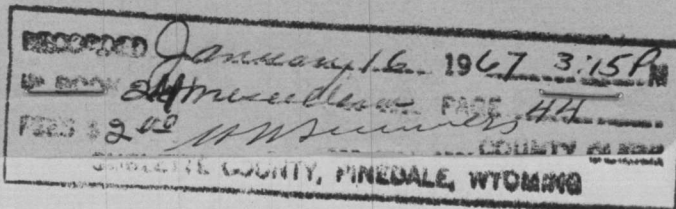 RECORDED January 16 1967 3:15 P M
IN BOOK 24 PAGE 44
FEES $ 2 00 COUNTY CLERK
SUBLETTE COUNTY, PINEDALE, WYOMING